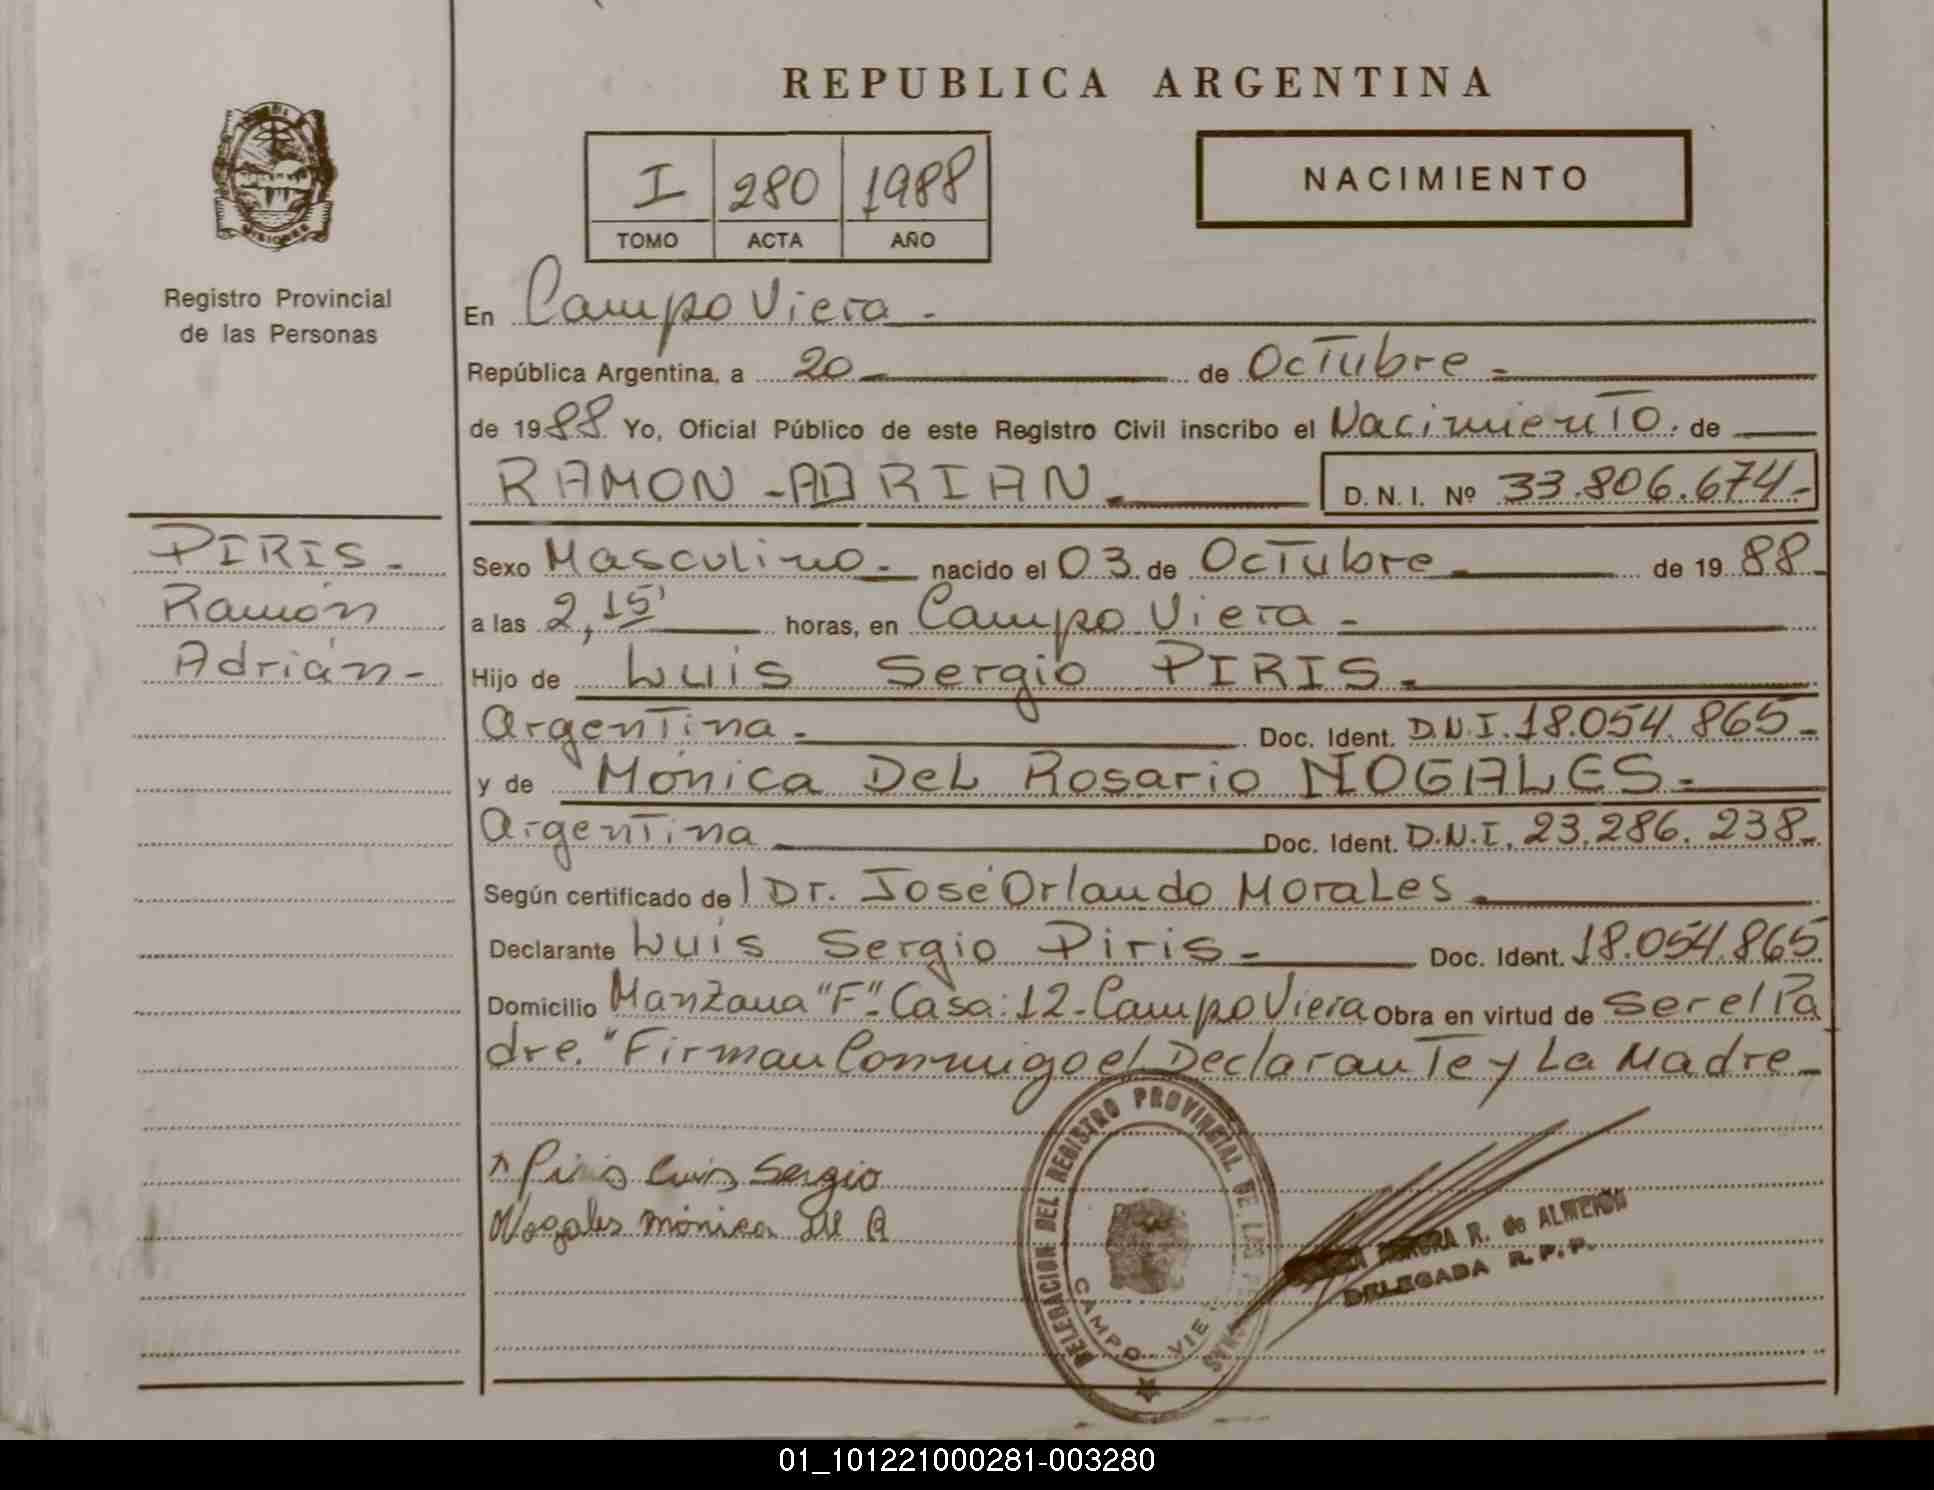 REPUBLICA ARGENTINA
MISIONES
Registro Provincial
de las Personas
I 280 1988
TOMO ACTA AÑO
NACIMIENTO
En Campo Viera.-
República Argentina, a 20 de Octubre.-
de 1988 Yo, Oficial Público de este Registro Civil inscribo el Nacimiento. de
RAMON-ADRIAN. D. N. I. Nº 33.806.674.-
PIRIS.-
Ramón
Adrián-
Sexo Masculino.- nacido el 03 de Octubre de 1988.-
a las 2,15' horas, en Campo Viera.-
Hijo de Luis Sergio PIRIS.
Argentina.- Doc. Ident. D.N.I. 18.054.865-
y de Mónica Del Rosario NOGALES.-
Argentina Doc. Ident. D.N.I. 23.286.238.-
Según certificado de l Dr. José Orlando Morales.
Declarante Luis Sergio Piris- Doc. Ident. 18.054.865
Domicilio Manzana "F"-Casa:12-Campo Viera Obra en virtud de Ser el Pa
dre. "Firman Conmigo el Declarante y La Madre-
Piris Luis Sergio
Nogales mónica del R
DELEGACION DEL REGISTRO PROVINCIAL DE LAS PERSONAS
CAMPO VIE
R. de ALMEIRON
DELEGADA R. P. P.
01_101221000281-003280